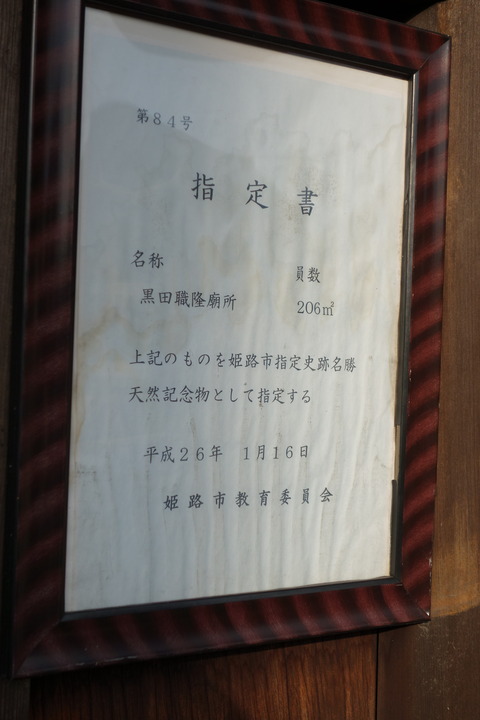 第84号
指定書
名称
員数
黒田職隆廟所
206㎡
上記のものを姫路市指定史跡名勝
天然記念物として指定する
平成26年 1月16日
姫路市教育委員会